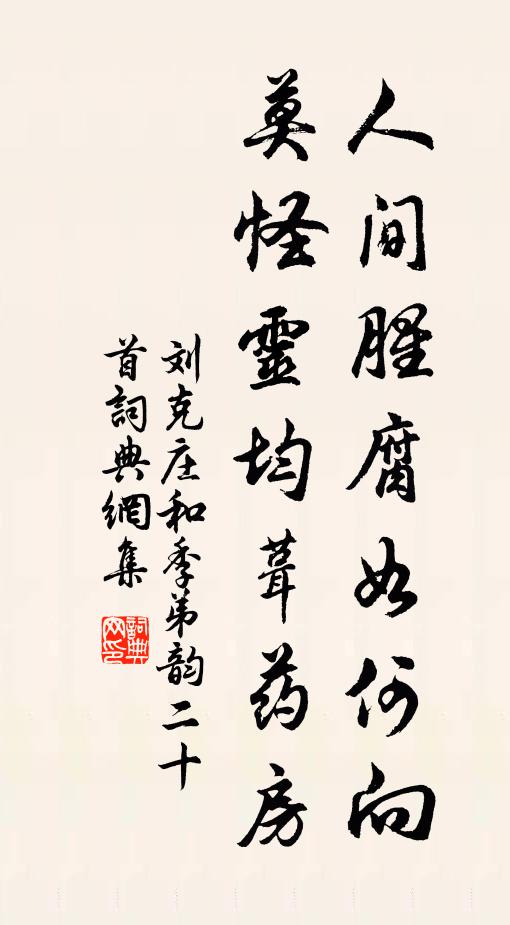 人间腥腐如何向
莫怪靈均葺药房
刘克庄和季弟韵二十
首詞典網集
詞典网印